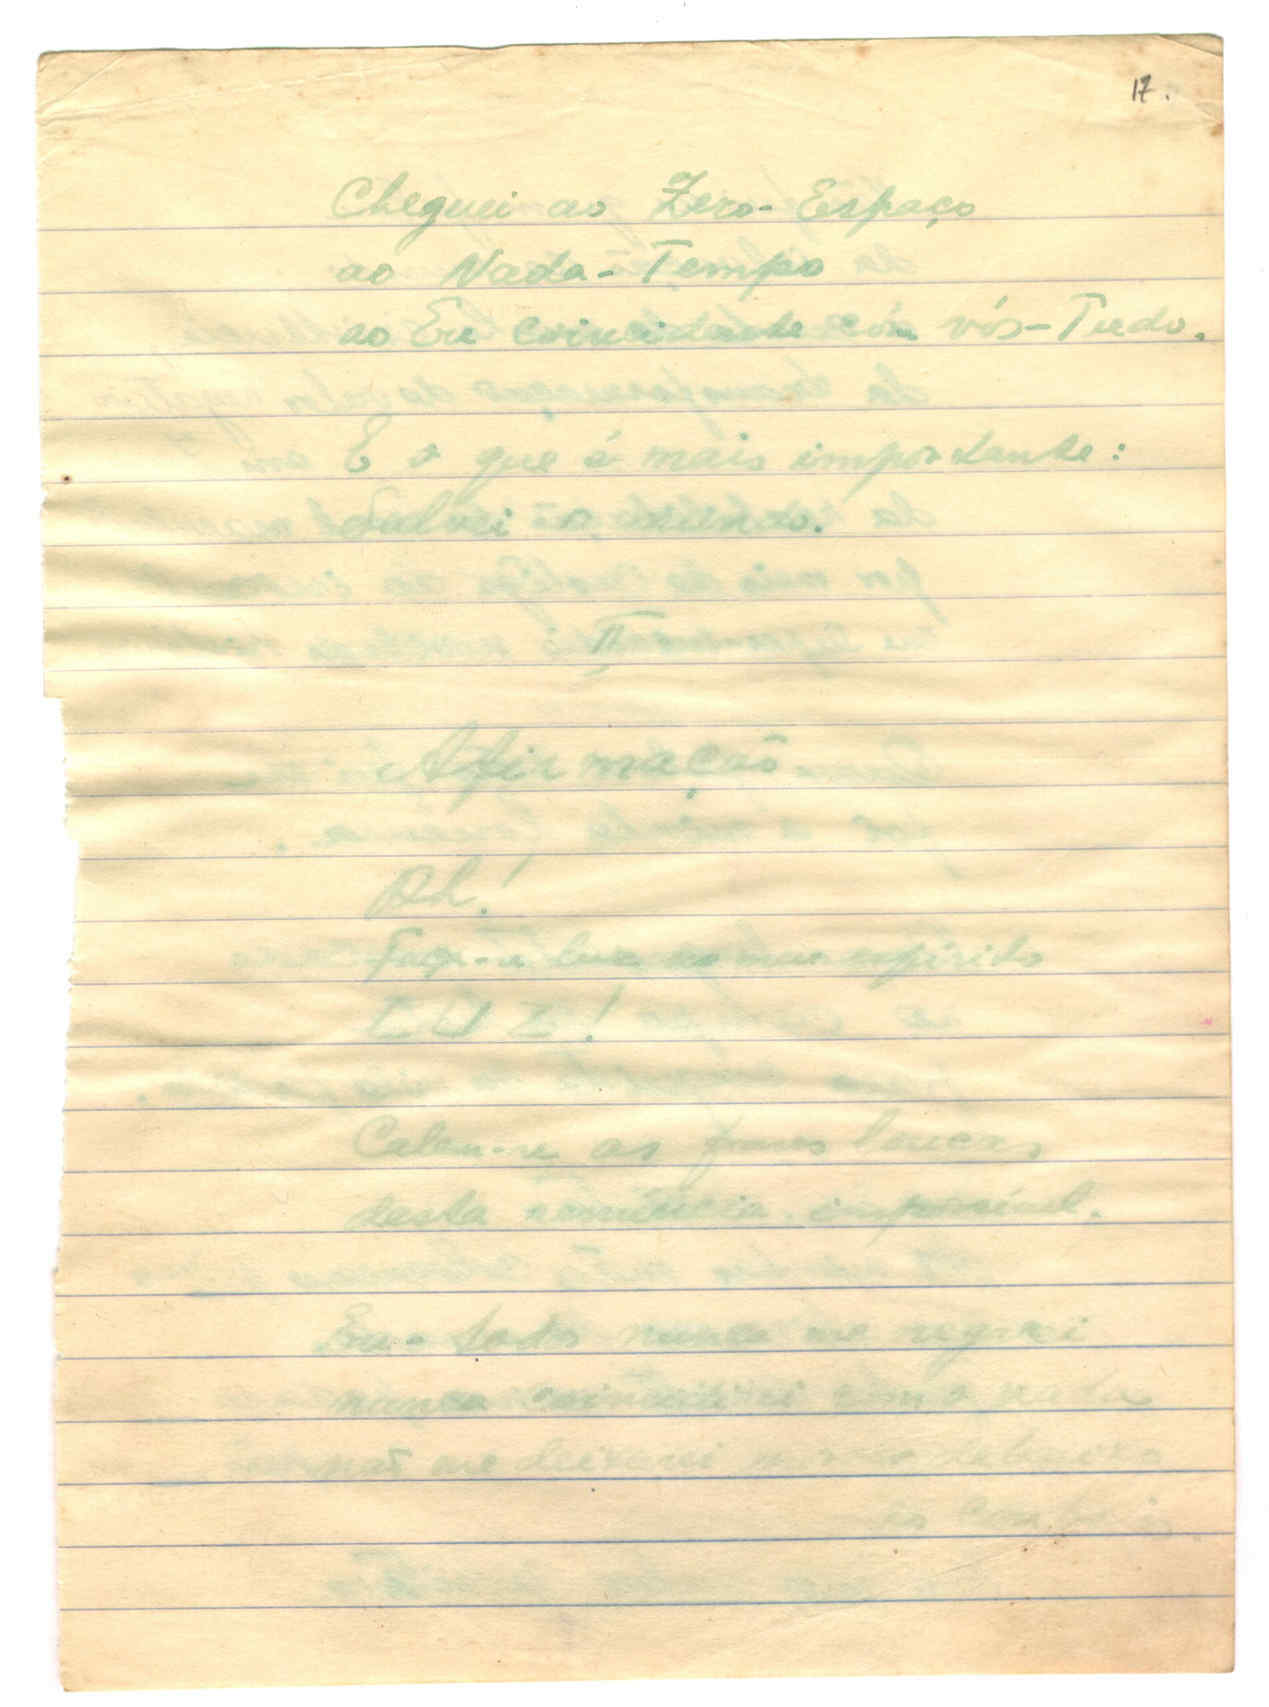 17.
Cheguei ao Zero-Espaço
ao Nada-Tempo
ao Eu coincidente con vós-Tudo.
E o que é mais importante:
Salvei o mundo.
II
Afirmação
Ah!
Faça-se luz no meu espírito
LUZ!
Calem-se as frases loucas
desta renúncia impossível.
Eu-todo nunca me negarei
nunca coincidirei com o nada
não me deixarei